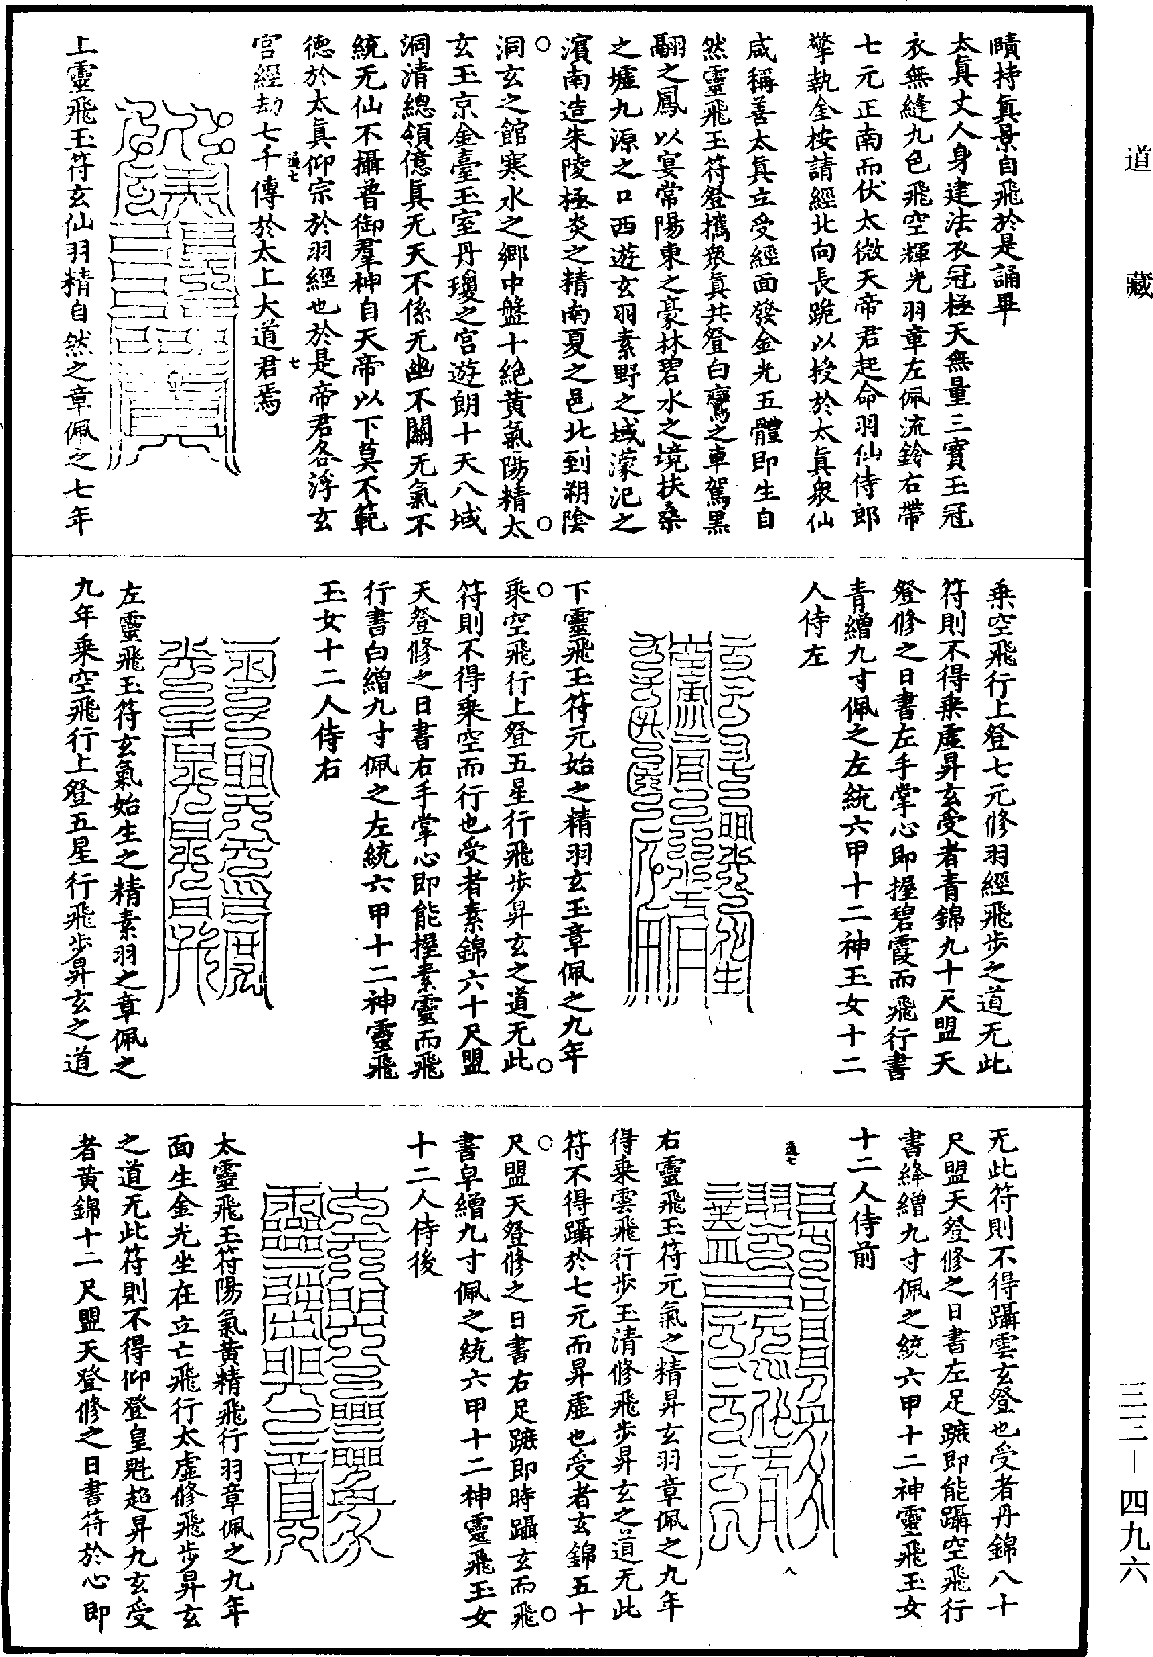 道藏
三三—四九六
賾持真景自飛於是誦畢
太真丈人身建法衣冠極天無量三寶玉冠
衣無縫九色飛空輝光羽章左佩流鈴右帶
七元正南而伏太微天帝君起命羽仙侍郎
擎執金按請經北向長跪以授於太真衆仙
咸稱善太真立受經面發金光五體即生自
然靈飛玉符登攜衆真共登白鸞之車駕黑
翮之鳳以宴常陽東之豪林碧水之境扶桑
之墟九源之口西遊玄羽素野之域濛汜之
濱南造朱陵極炎之精南夏之邑北到朔陰
洞玄之館寒水之鄉中盤十絕黃氣陽精太
玄玉京金臺玉室丹瓊之宮遊朗十天八域
洞清總領億真无天不係无幽不關无氣不
統无仙不攝普御羣神自天帝以下莫不範
德於太真仰宗於羽經也於是帝君各浮玄
宮經劫七千傳於太上大道君焉
上靈飛玉符玄仙羽精自然之章佩之七年
乘空飛行上登七元修羽經飛步之道无此
符則不得乘虛昇玄受者青錦九十尺盟天
登修之日書左手掌心即握碧霞而飛行書
青繒九寸佩之左統六甲十二神玉女十二
人侍左
下靈飛玉符元始之精羽玄玉章佩之九年
乘空飛行上登五星行飛步昇玄之道无此
符則不得乘空而行也受者素錦六十尺盟
天登修之日書右手掌心即能握素靈而飛
行書白繒九寸佩之左統六甲十二神靈飛
玉女十二人侍右
左靈飛玉符玄氣始生之精素羽之章佩之
九年乘空飛行上登五星行飛步昇玄之道
无此符則不得躡雲玄登也受者丹錦八十
尺盟天登修之日書左足蹠即能躡空飛行
書絳繒九寸佩之統六甲十二神靈飛玉女
十二人侍前
右靈飛玉符元氣之精昇玄羽章佩之九年
得乘雲飛行步玉清修飛步昇玄之道无此
符不得躡於七元而昇虛也受者玄錦五十
尺盟天登修之日書右足蹠即時躡玄而飛
書皁繒九寸佩之統六甲十二神靈飛玉女
十二人侍後
太靈飛玉符陽氣黃精飛行羽章佩之九年
面生金光坐在立亡飛行太虛修飛步昇玄
之道无此符則不得仰登皇魁超昇九玄受
者黃錦十二尺盟天登修之日書符於心即